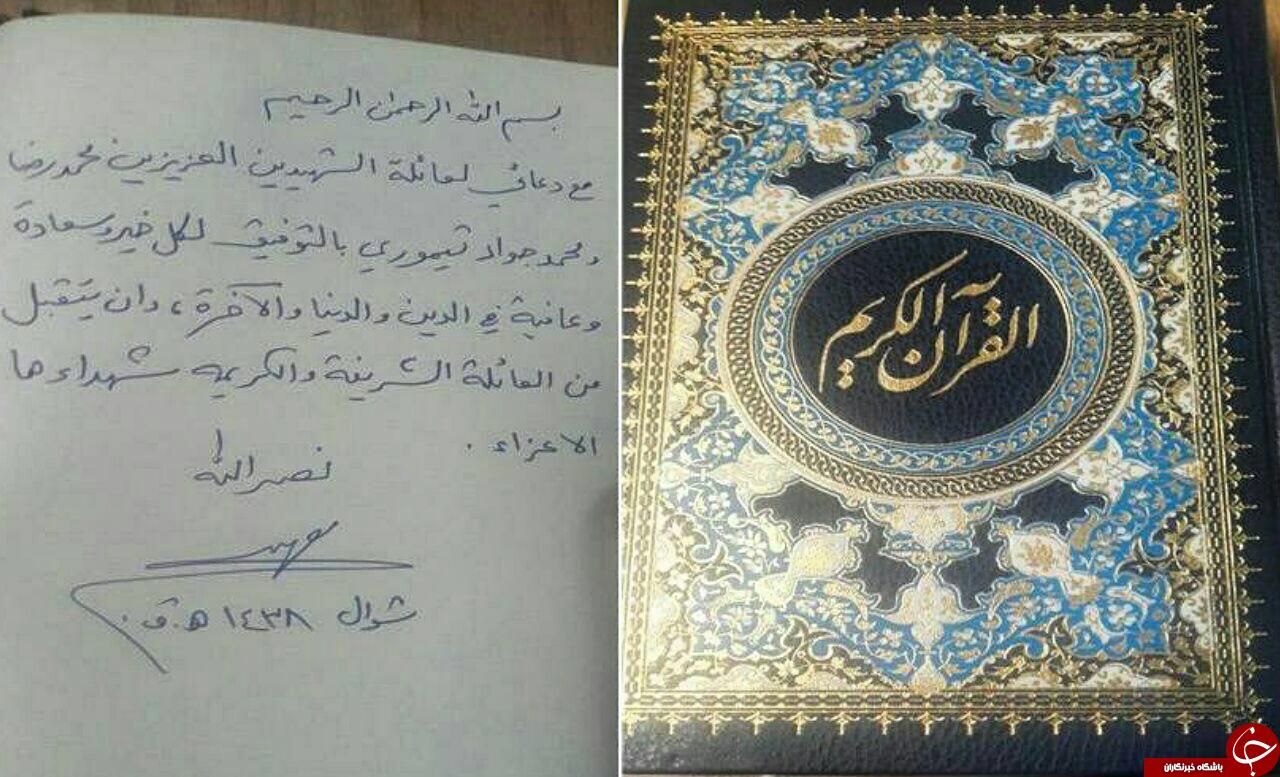 بسم الله الرحمن الرحيم
مع دعائي لعائلة الشهيدين العزيزين محمد رضا
ومحمد جواد تيموري بالتوفيق لكل خير وسعادة
وعافية في الدين والدنيا والآخرة، وان يتقبل
من العائلة الشريفة والكريمه شهداءها
الاعزاء.
نصرالله
شوال ١٤٣٨ هـ.ق.
القرآن الكريم
باشگاه خبرنگاران